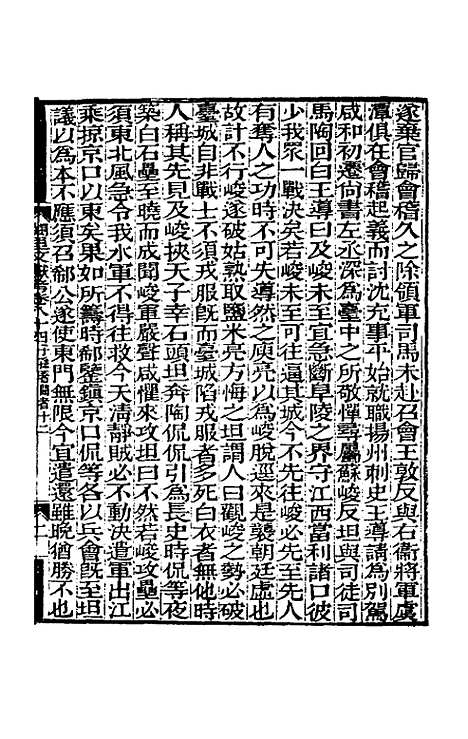 遂棄官歸會稽久之除領軍司馬未赴召會王敦反與右衞將軍虞
潭俱在會稽起義而討沈充事平始就職揚州刺史王導請為別駕
咸和初遷尚書左丞深為臺中之所敬憚尋屬蘇峻反坦與司徒司
馬陶回白王導曰及峻未至宜急斷阜陵之界守江西當利諸口彼
少我眾一戰決矣若峻未至可往逼其城今不先往峻必先至先人
有奪人之功時不可失導然之庾亮以為峻脫逕來是襲朝廷虛也
故計不行峻遂破姑孰取鹽米亮方悔之坦謂人曰觀峻之勢必破
臺城自非戰士不須戎服旣而臺城陷戎服者多死白衣者無他時
人稱其先見及峻挾天子幸石頭坦奔陶侃侃引為長史時侃等夜
築白石壘至曉而成聞峻軍嚴聲咸懼來攻坦曰不然若峻攻壘必
須東北風急令我水軍不得往救今天淸靜賊必不動決遣軍出江
乘掠京口以東矣果如所籌時郗鑒鎮京口侃等各以兵會旣至坦
議以為本不應須召郗公遂使東門無限今宜遣還雖晚猶勝不也